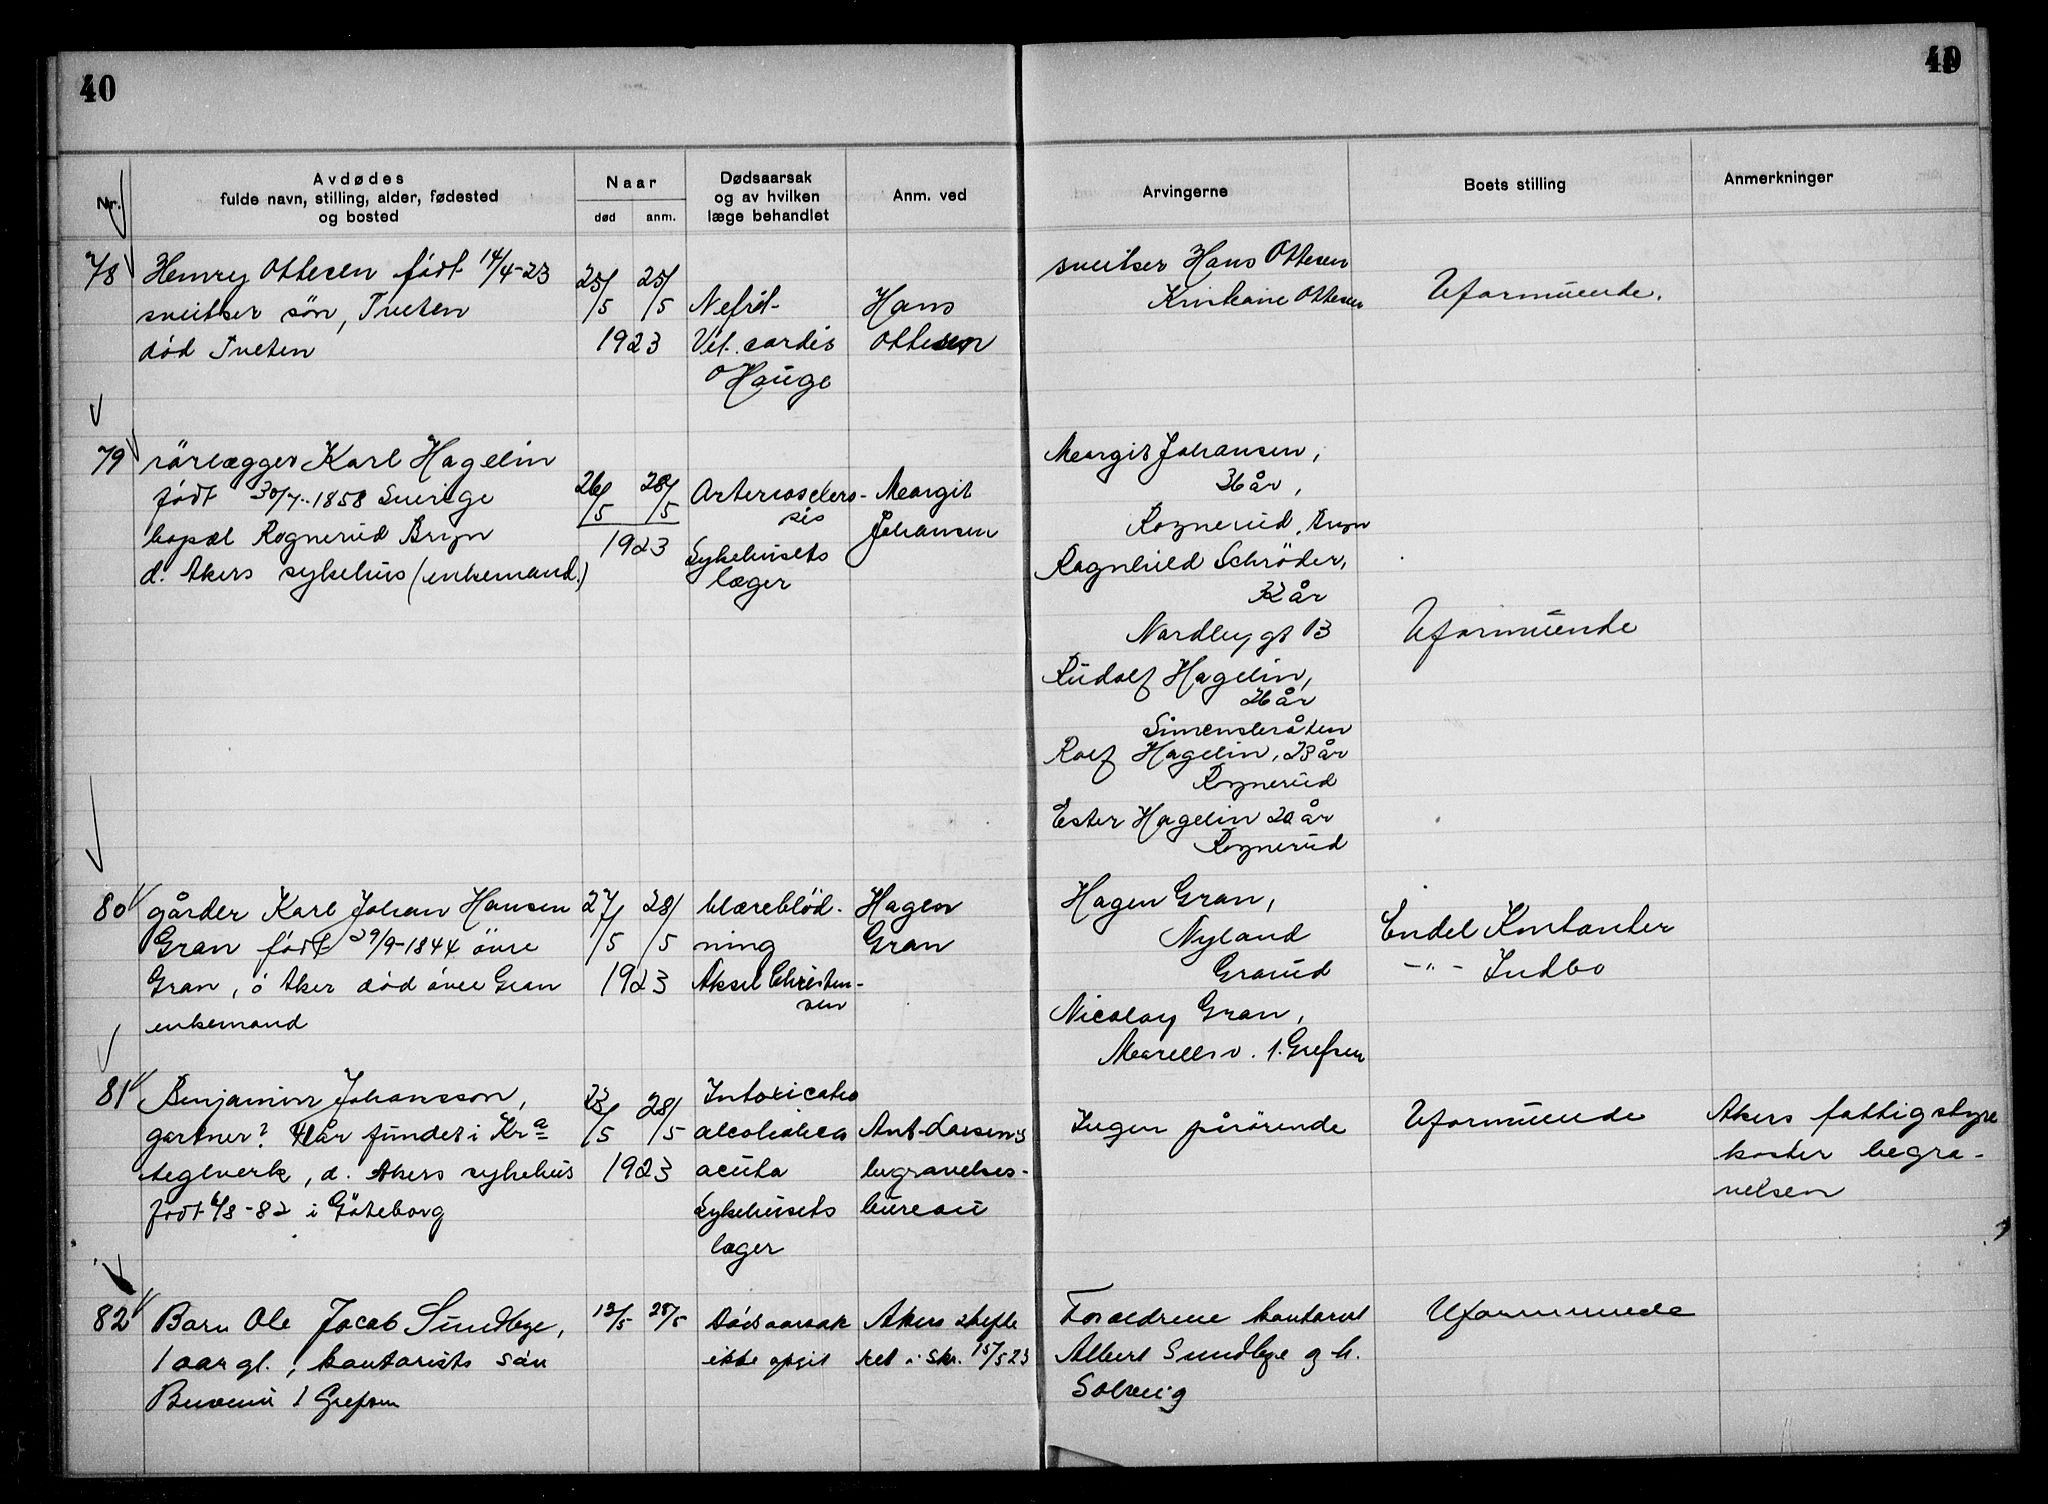 40
40
Nr.
Avdødes
fulde navn, stilling, alder, fødested
og bosted
Naar
død
anm.
Dødsaarsak
og av hvilken
læge behandlet
Anm. ved
Arvingerne
Boets stilling
Anmerkninger
78
Henry Ottesen født 14/4-23
sveitser søn, Tveten
død Tveten
25/5 25/5
1923
Nefrit
Vit. cordis
O Hauge
Hans
Ottesen
sveitser Hans Ottesen
Kristiane Ottesen
Uformuende.
79
rörlægger Karl Hagelin
født 30/7-1858 Sverige
bopæl Rognerud Bryn
d. Akers sykehus (enkemand.)
26/5 28/5
1923
Arteriosclero-
sis
Sykehusets
læger
Margit
Johansen
Margit Johansen,
36 år,
Rognerud, Bryn
Ragnhild Schröder,
32 år
Nordbygt 13
Rudolf Hagelin,
26 år
Simensbråten
Rolf Hagelin, 23 år
Rognerud
Ester Hagelin 20 år
Rognerud
Uformuende
80
gårder Karl Johan Hansen
Gran født 29/9-1844 övre
Gran, ö Aker död övre Gran
enkemand
27/5 28/5
1923
blæreblöd-
ning
Aksel Christen-
sen
Hagen
Gran
Hagen Gran,
Nyland
Grorud
Nicolay Gran,
Morells v. 1. Grefsen
Endel Kontanter
-"- Indbo
81
Benjamin Johansson,
gartner? 41 år fundet i Kra
teglverk, d. Akers sykehus
født 6/8-82 i Göteborg
23/5 28/5
1923
Intoxicatio
alcoholica
acuta
Sykehusets
læger
Ant. Larsens
begravelses-
bureau
Ingen pårörende
Uformuende
Akers fattigstyre
koster begra-
velsen
82
Barn Ole Jacob Sundbye,
1 aar gl., kontorists sön
1 Grefsen
12/5 28/5
Dödsaarsak
ikke opgit
Akers skifte
ret i skr. 15/5 23
Foraeldrene kontorist
Albert Sundbye og h.
Solveig
Uformuende